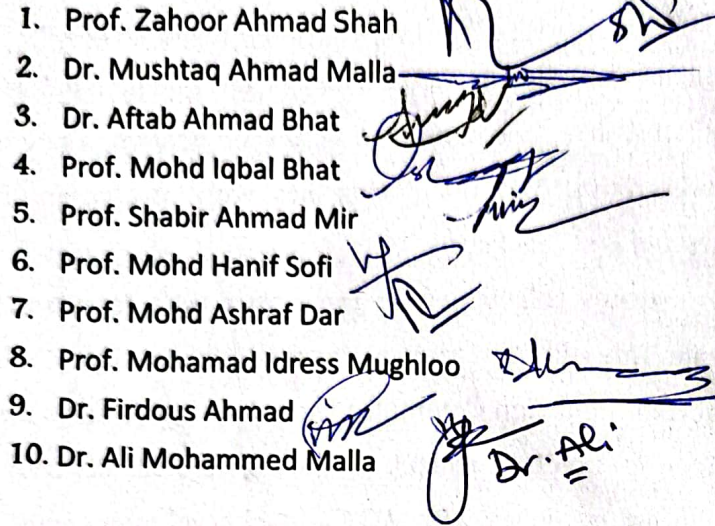 1. Prof. Zahoor Ahmad Shah
2. Dr. Mushtaq Ahmad Malla
3. Dr. Aftab Ahmad Bhat
4. Prof. Mohd Iqbal Bhat
5. Prof. Shabir Ahmad Mir
6. Prof. Mohd Hanif Sofi
7. Prof. Mohd Ashraf Dar
8. Prof. Mohamad Idress Mughloo
9. Dr. Firdous Ahmad
10. Dr. Ali Mohammed Malla Dr. Ali